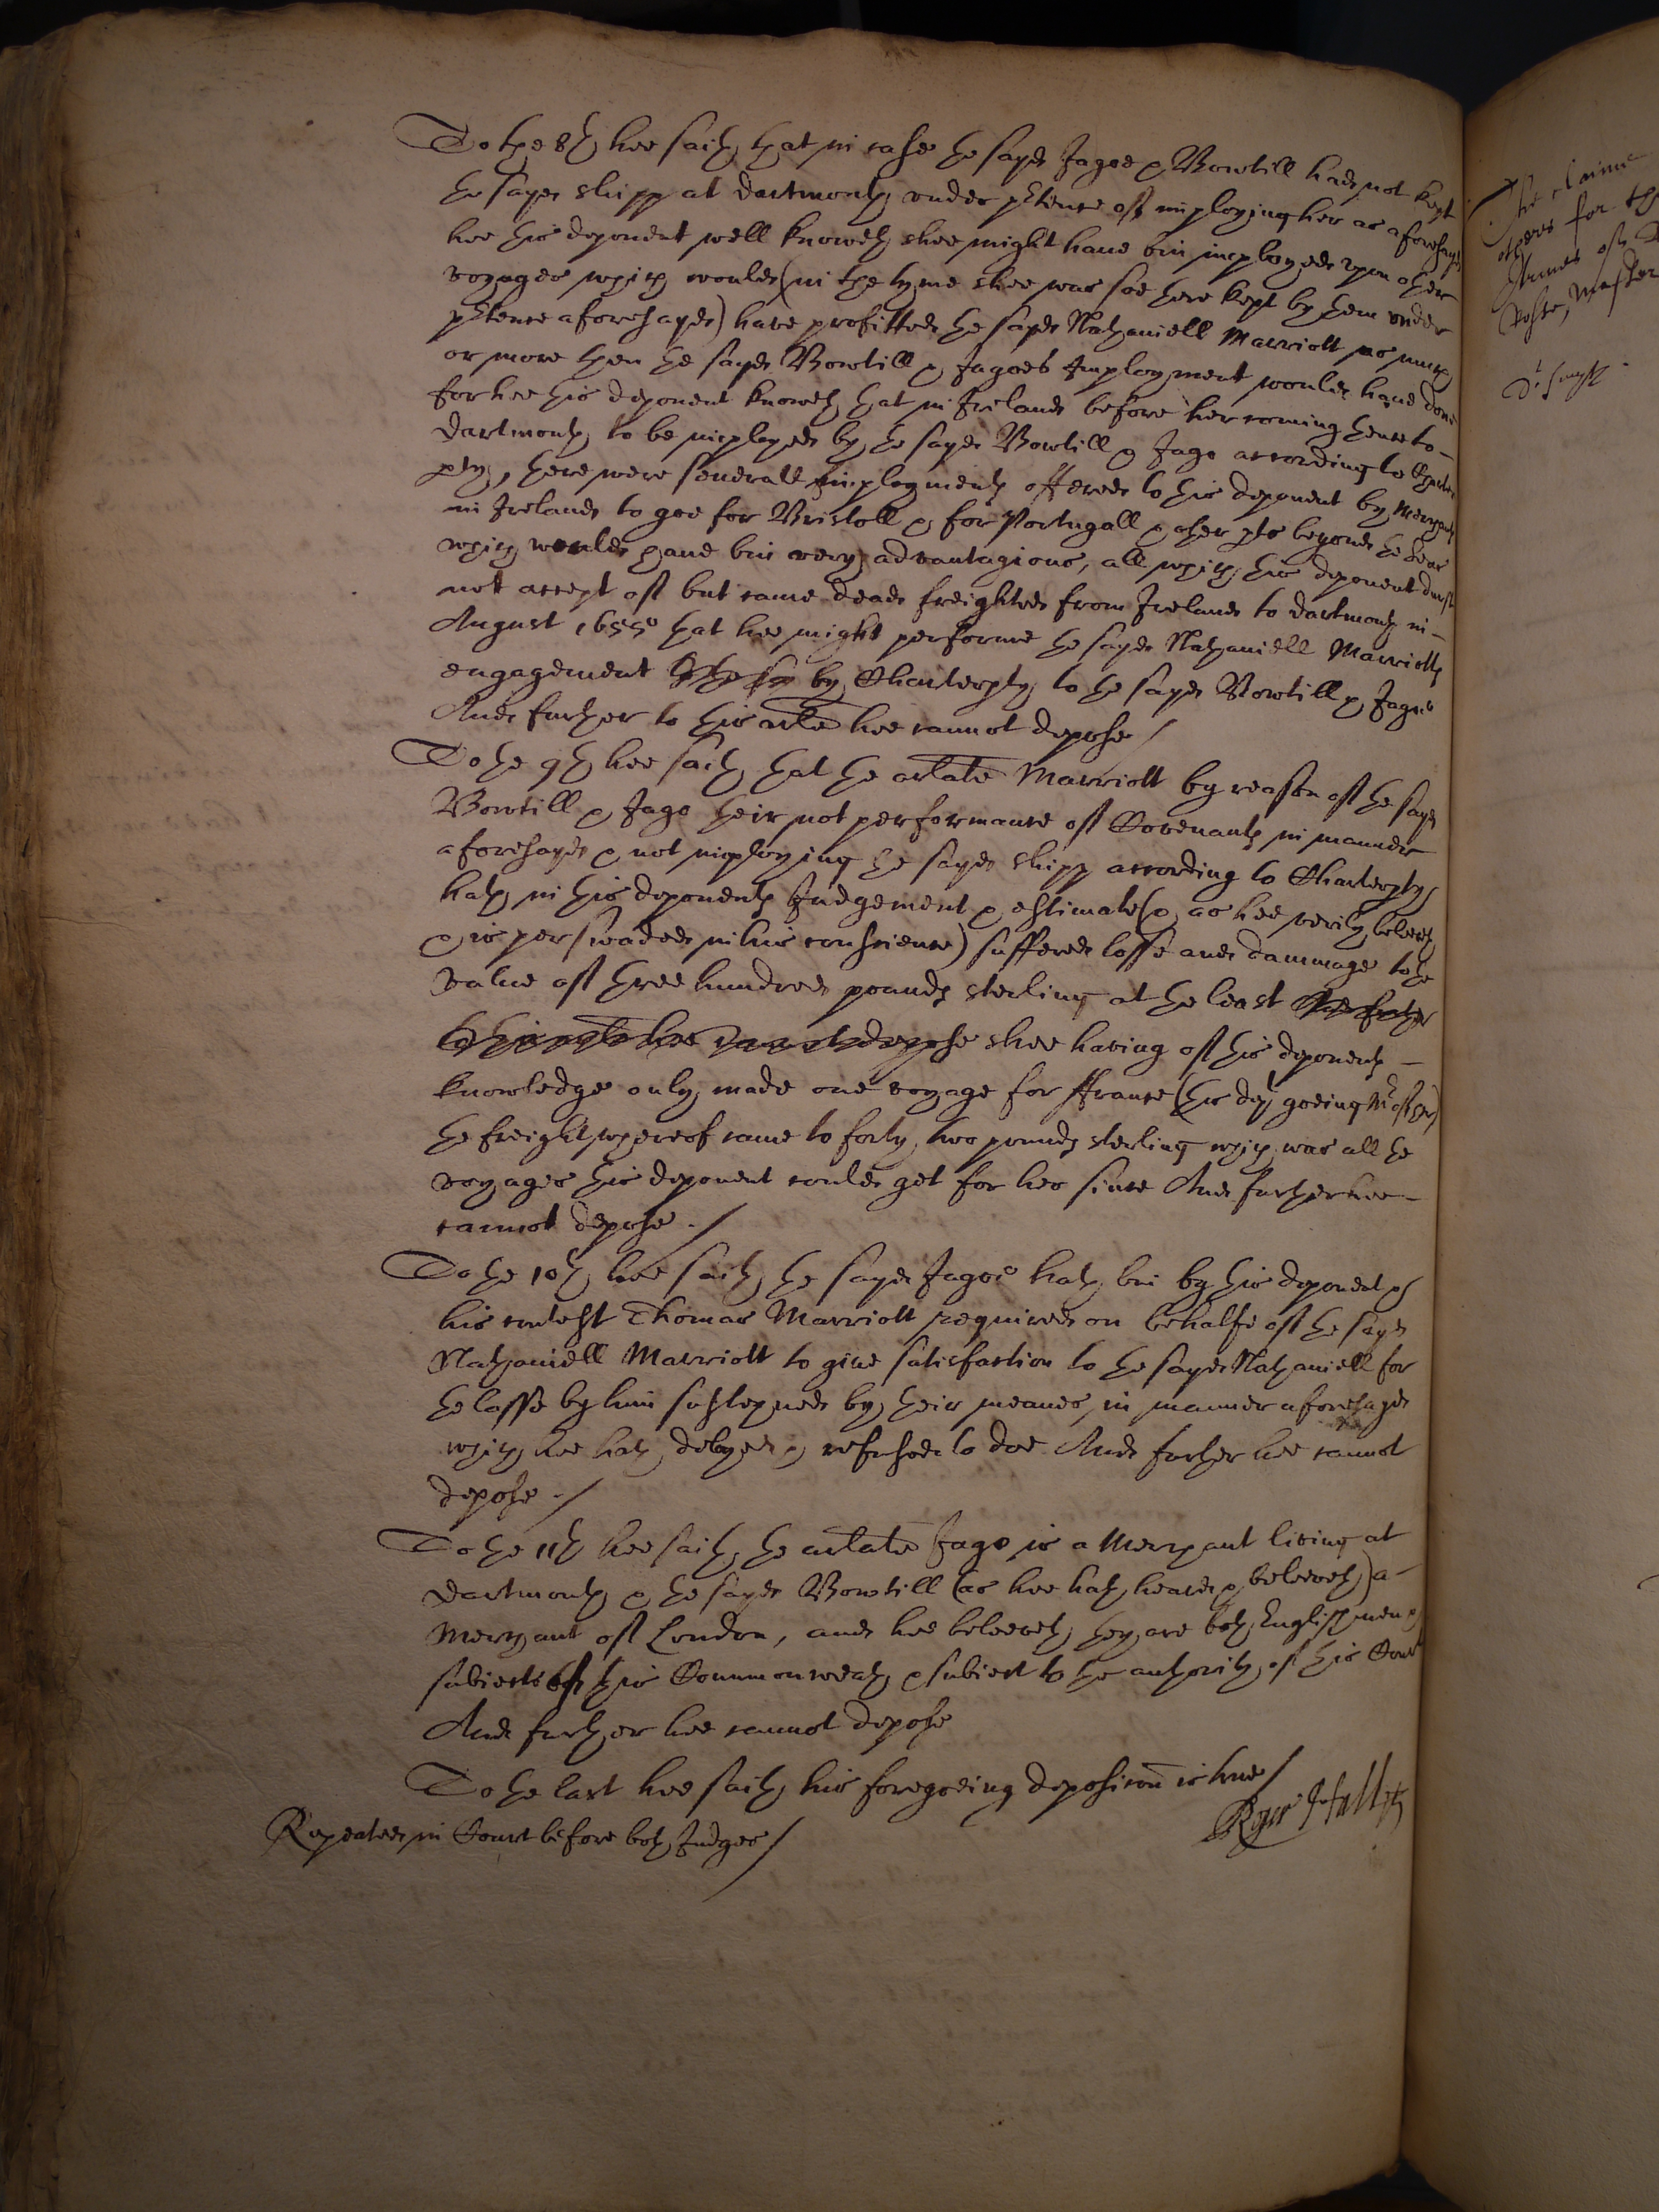 To the 8th hee saith that in case the sayd Jagoe & Bowtill had not kept
the sayd shipp at dartmouth under ptence of imploying her as aforesayd
hee this deponent well knoweth shee might have bin imployed upon other
voyages which would (in the tyme shee was soe there kept by them under
ptence aforesayd) have profitted the sayd Nathaniell Marriott as much
or more then the sayd Bowtill & Jagoes Imployment would have done
for hee this deponent knoweth that in Ireland before her coming thence to
dartmouth to be imployed by the sayd Bowtill & Jago according to Charter
pty, there were severall imployments offered to this deponent by Merchants
in Ireland to goe for Bristoll & for Portugall & other pts beyond the Seas
which would have bin very advantagious, all which this deponent durst
not accept of but came dead freighted from Ireland to dartmouth in
August 1655 that hee might performe the sayd Nathaniell Marriotts
engagement by Charterpty to the sayd Bowtill & Jagoe
And further to this arlte hee cannot depose /
To the 9th hee saith that the arlate Marriott by reason of the sayd
Bowtill & Jago their not performance of Covenants in manner
aforesayd & not imploying the sayd shipp according to Charterpty
hath in this deponents Judgement & estimate (& as hee verily beleeveth
& is perswaded in his conscience) suffered losse and dammage to the
value of three hundred pounds sterling at the least And further
to this arlte hee cannot depose shee having of this deponents
knowledge only made one voyage for ffrance (this dept goeing Mr of her)
the freight whereof came to forty two pounds sterling which was all the
voyages this deponent could get for her since And further hee
cannot depose ./
To the 10th hee saith the sayd Jagoe hath bin by this deponent &
his contest Thomas Marriott required on behalfe of the sayd
Nathaniell Marriott to give satisfaction to the sayd Nathaniell for
the losse by him susteyned by their meanes in manner aforesayd
which hee hath delayed & refused to doe And further hee cannot
depose ./
To the 11th hee saith the arlate Jago is a Merchant living at
dartmouth & the sayd Bowtill (as hee hath heard & beleeveth) a
Merchant of London, and hee beleeveth they are both Englishmen &
subiects of this Commonwealth & subiect to the authority of this Court
And further hee cannot depose
To the last hee saith his foregoeing deposicon is true /
Repeated in Court before both Judges /
The claime
others for th
Dr Smyth